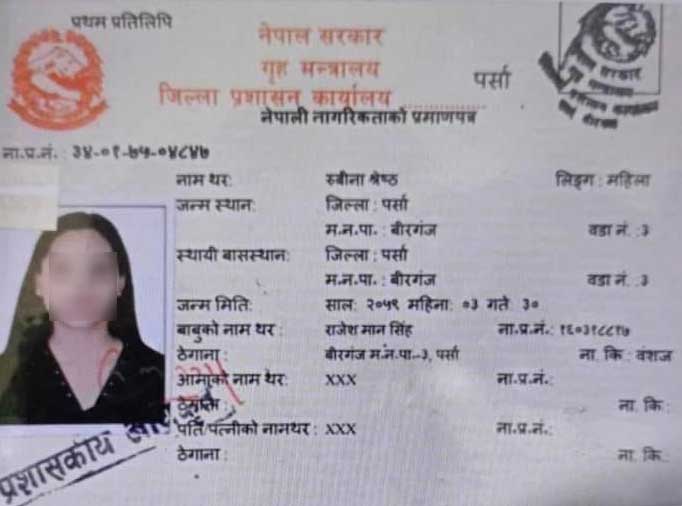 प्रथम प्रतिलिपि
नेपाल सरकार
गृह मन्त्रालय
जिल्ला प्रशासन कार्यालय पर्सा
नेपाली नागरिकताको प्रमाणपत्र
ना.प्र.नं. : ३४-०१-७५-०४८४७
नाम थर: रुबीना श्रेष्ठ लिङ्ग : महिला
जन्म स्थान: जिल्ला : पर्सा
म.न.पा. : बीरगंज वडा नं. :३
स्थायी बासस्थान: जिल्ला : पर्सा
म.न.पा. : बीरगंज वडा नं. :३
जन्म मिति: साल: २०५९ महिना: ०३ गते: ३०
बाबुको नाम थर : राजेश मान सिंह ना.प्र.नं.:
ठेगाना : बीरगंज म.न.पा.-३, पर्सा ना. कि : वंशज
आमाको नाम थर: XXX ना.प्र.नं.:
ठेगाना : ना. कि :
पति/पत्नीको नामथर : XXX ना.प्र.नं.:
ठेगाना : ना. कि :
प्रशासकीय